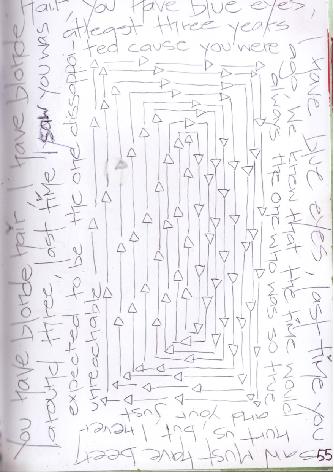 You have blonde hair, I have blonde hair
You have blue eyes,
I have blue eyes, last time you
saw must have been
around three, last time I saw you was
atleast three years
ago. We knew that the time would
hurt us, but I never
expected to be the one dissapoin-
ted cause you were
always the one who was so true
and your just
unreachable
55